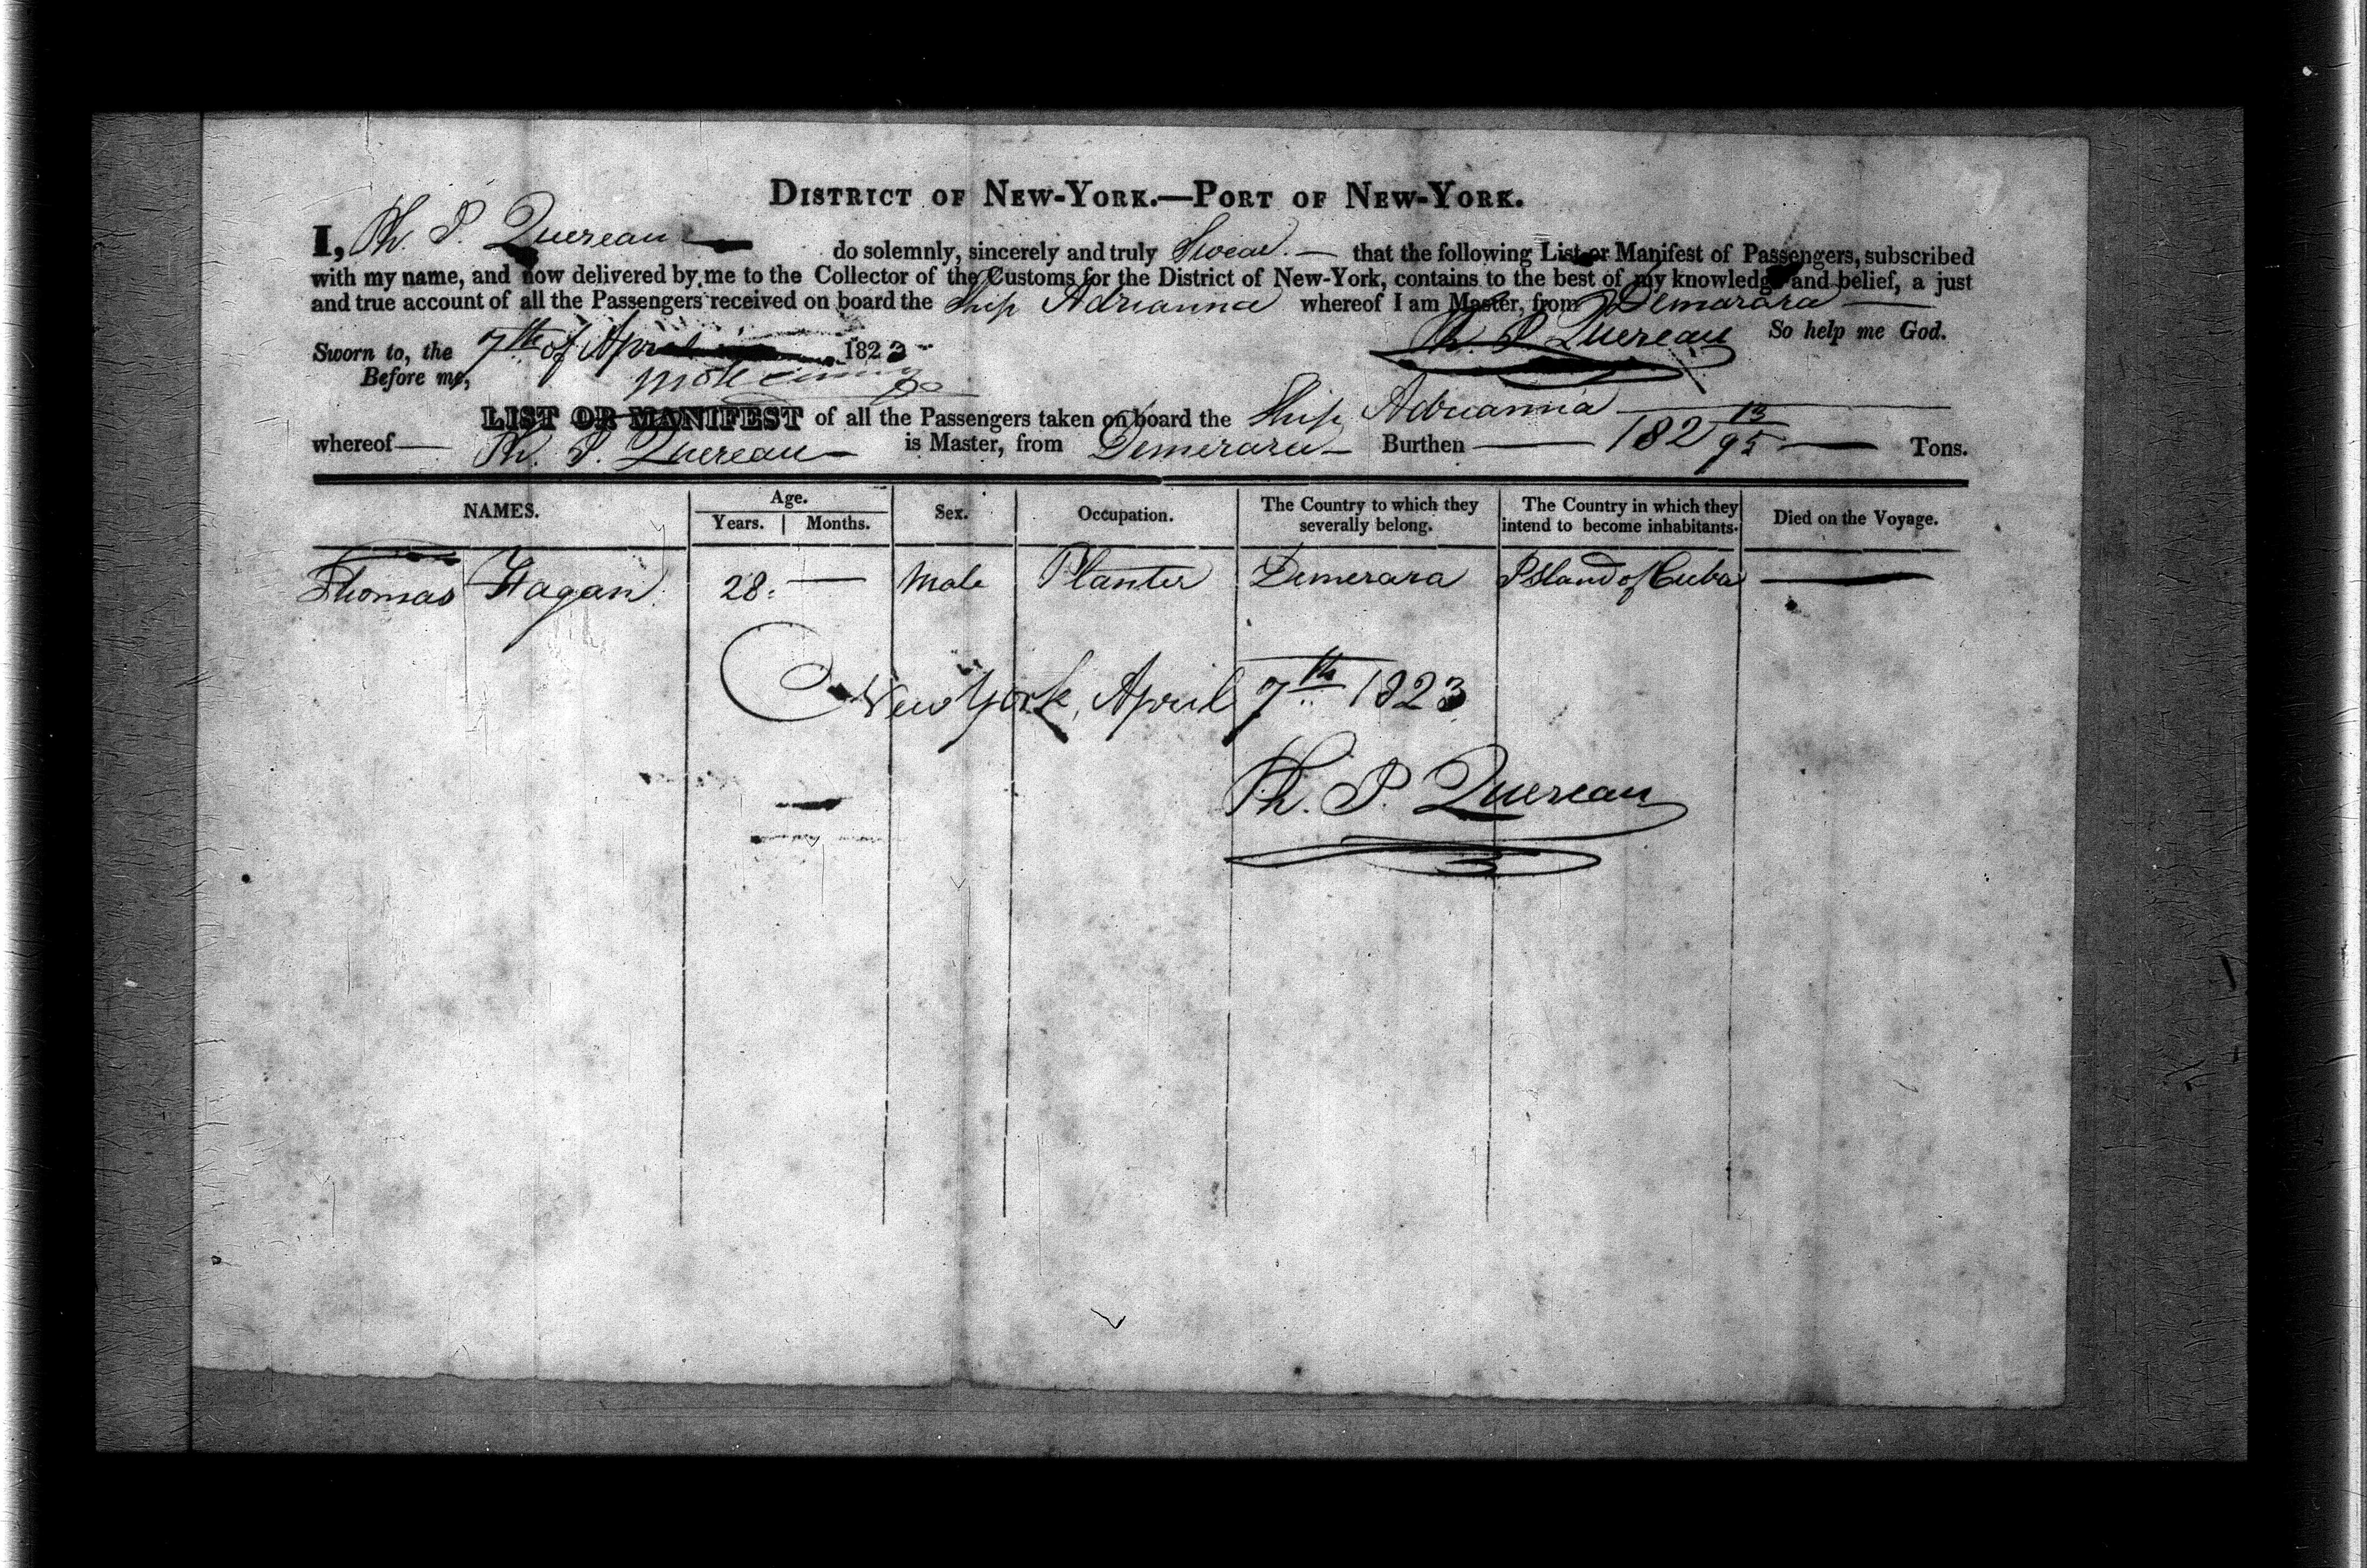 DISTRICT OF NEW-YORK.—PORT OF NEW-YORK.
I, Th. P. Quereau do solemnly, sincerely and truly Swear — that the following List or Manifest of Passengers, subscribed
with my name, and now delivered by me to the Collector of the Customs for the District of New-York, contains to the best of my knowledge and belief, a just
and true account of all the Passengers received on board the Ship Adrianna whereof I am Master, from Demarara
Th. P. Quereau So help me God.
Sworn to, the 7th of April 1823
Before me,
LIST OR MANIFEST of all the Passengers taken on board the Ship Adrianna
whereof Th. P. Quereau is Master, from Demerara Burthen 182 13/95 Tons.
NAMES. Age. Years. Months. Sex. Occupation. The Country to which they severally belong. The Country in which they intend to become inhabitants. Died on the Voyage.
Thomas Hagan 28. — Male Planter Demerara Island of Cuba —
New York, April 7th 1823
Th. P. Quereau